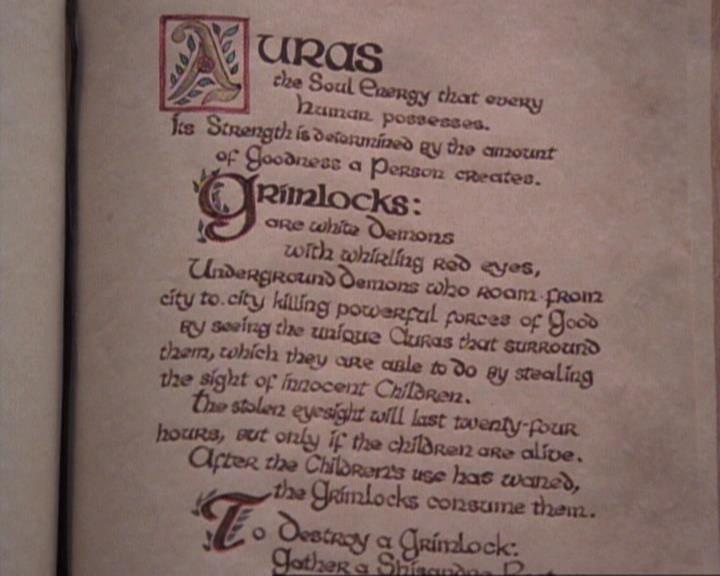 AURAS
the Soul Energy that every
human possesses.
Its Strength is determined by the amount
of Goodness a Person creates.
Grimlocks:
are white Demons
with whirling red eyes,
Underground Demons who roam from
city to city killing powerful forces of Good
By seeing the unique Auras that surround
them, which they are able to do by stealing
the sight of innocent Children.
the stolen eyesight will last twenty-four
hours, but only if the children are alive.
After the Children's use has waned,
the Grimlocks consume them.
To Destroy a Grimlock:
Gather a Shisandra Root